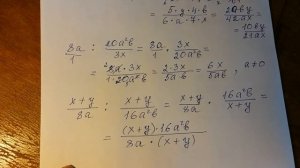 = 5·y·4·b / 6·a·7·x = 20by / 42ax =
= 10by / 21ax
8a/1 : 20a²b/3x = 8a/1 · 3x/20a²b =
= ²8a·3x / 1·20a²b = 2·3x / 5ab = 6x / 5ab , a≠0
x+y/8a : x+y/16a²b = x+y/8a · 16a²b/x+y =
= (x+y)·16a²b / 8a·(x+y)